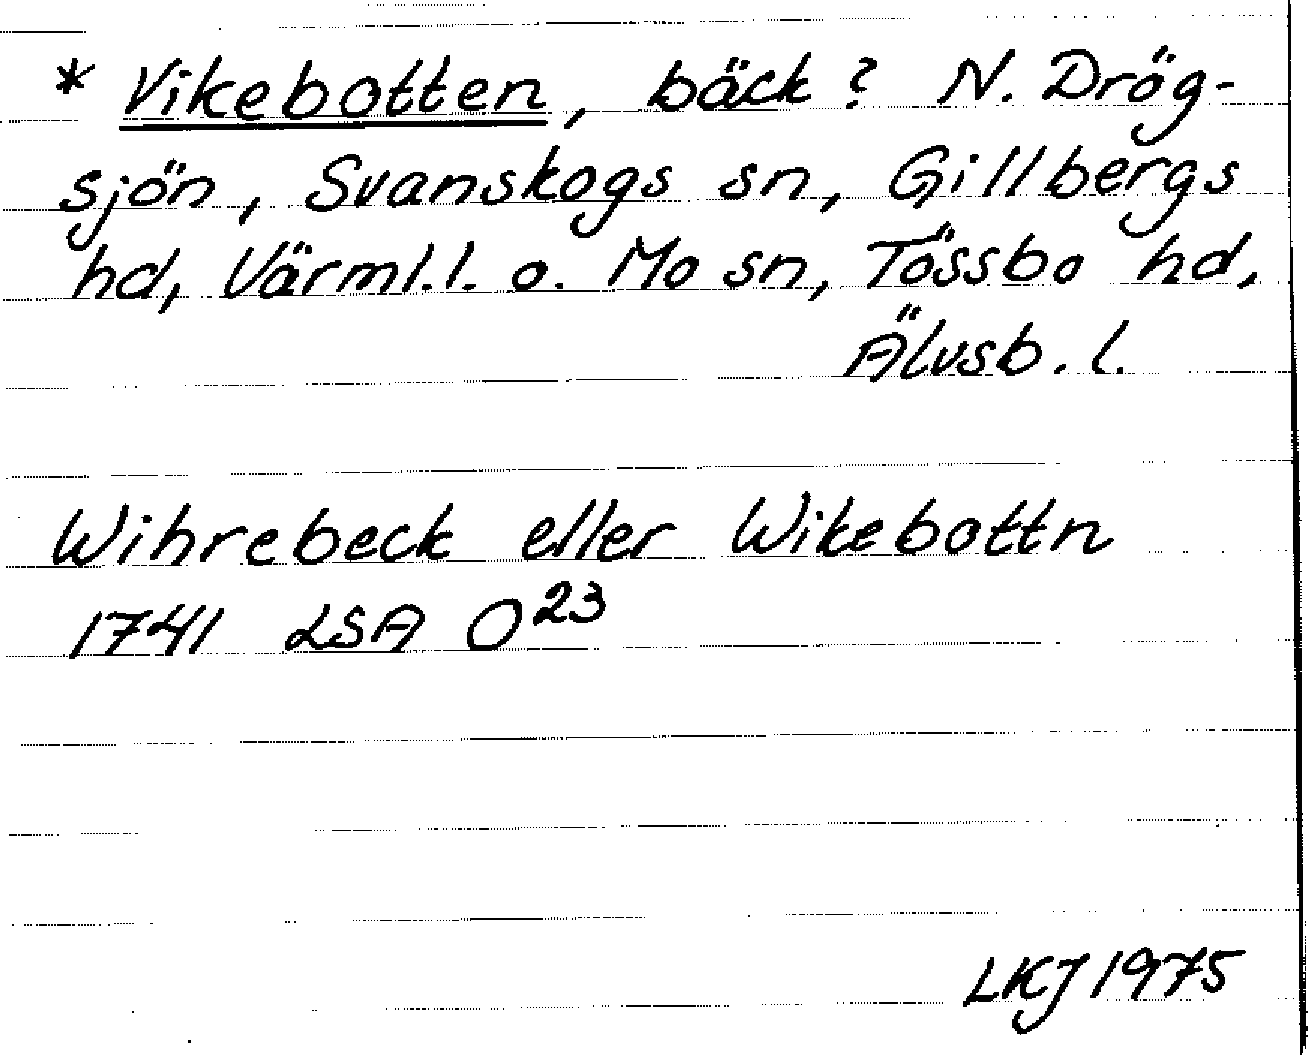 * Vikebotten, bäck? N. Drög-
sjön, Svanskogs sn, Gillbergs
hd, Värml.l. o. Mo sn, Tössbo hd,
Älvsb. l.
Wihrebeck eller Wikebottn
1741 LSA O23
LKJ 1975